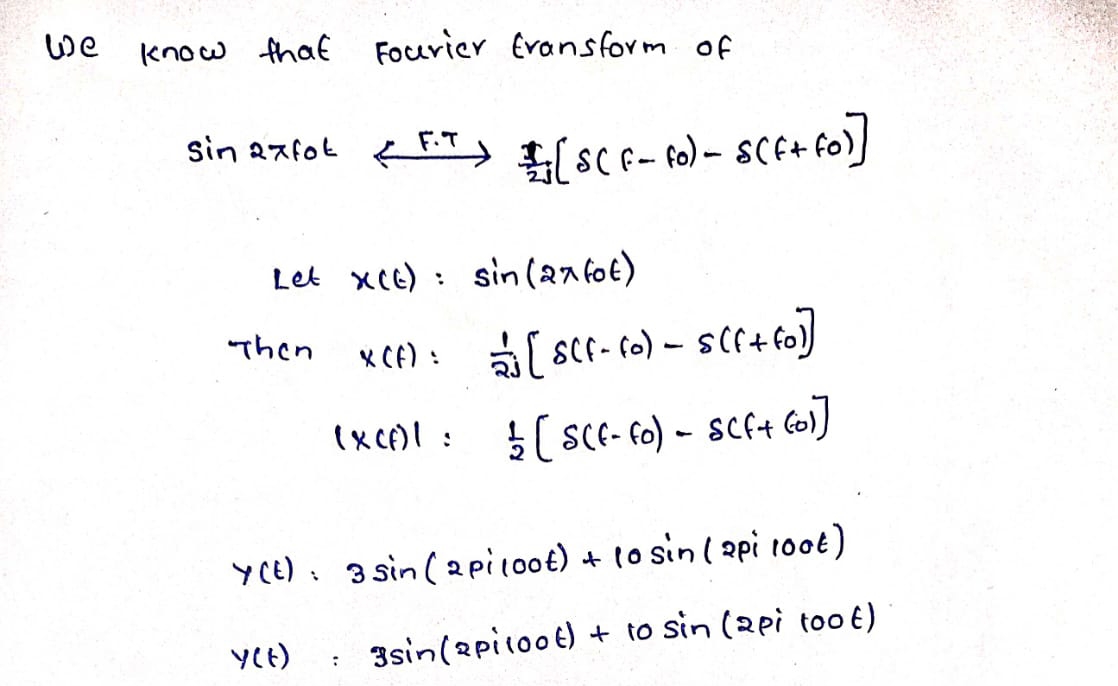 We know that Fourier transform of
sin 2πfot ←F.T→ 1/2j[δ(f-fo) - δ(f+fo)]
Let x(t) : sin(2πfot)
Then x(f) : 1/2j[δ(f-fo) - δ(f+fo)]
|x(f)| : 1/2[δ(f-fo) - δ(f+fo)]
y(t) : 3 sin(2pi100t) + 10 sin(2pi 100t)
y(t) : 3sin(2pi100t) + 10 sin(2pi 100t)